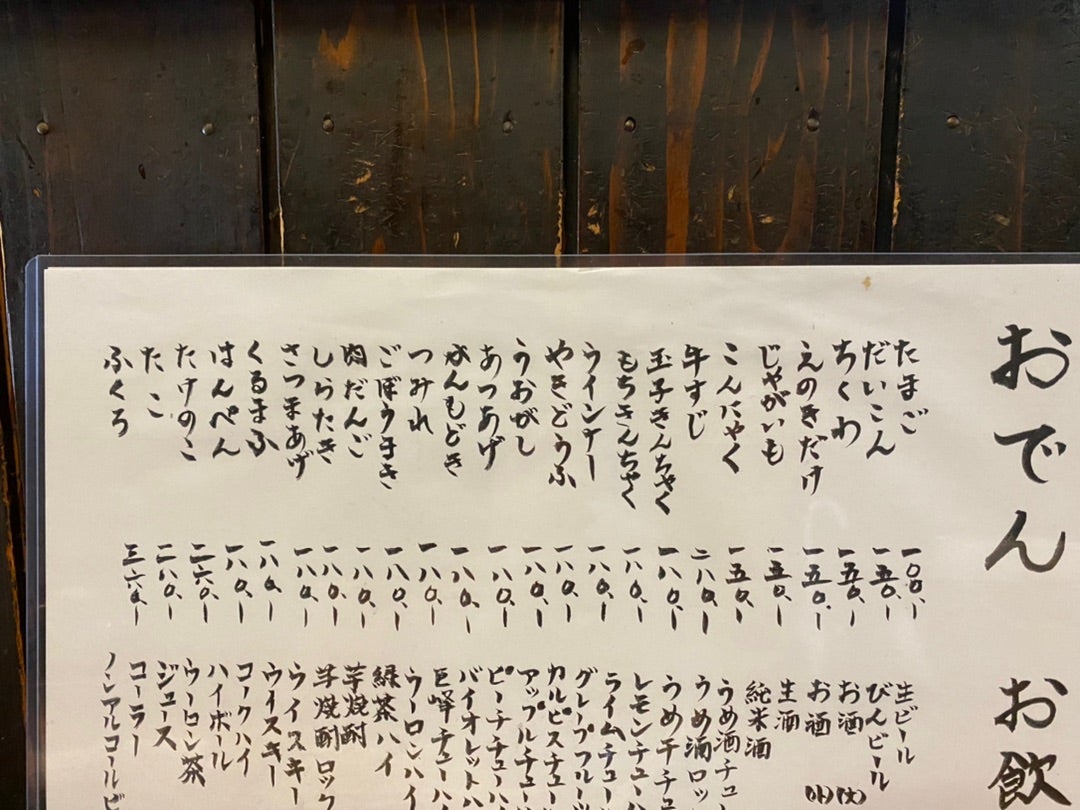 おでん
たまご 一〇〇.ー
だいこん 一五〇.ー
ちくわ 一五〇.ー
えのきだけ 一五〇.ー
じゃがいも 一五〇.ー
こんにゃく 一五〇.ー
牛すじ 二八〇.ー
玉子きんちゃく 一八〇.ー
もちきんちゃく 一八〇.ー
ウインナー 一八〇.ー
やきどうふ 一八〇.ー
うおがし 一八〇.ー
あつあげ 一八〇.ー
がんもどき 一八〇.ー
つみれ 一八〇.ー
ごぼうまき 一八〇.ー
肉だんご 一八〇.ー
しらたき 一八〇.ー
さつまあげ 一八〇.ー
くるまふ 一八〇.ー
はんぺん 一八〇.ー
たけのこ 二六〇.ー
たこ 二八〇.ー
ふくろ 三六〇.ー
お飲
生ビール
びんビール
お酒 (大)
お酒 (小)
生酒
純米酒
うめ酒チュー
うめ酒ロッ
うめ干チュ
レモンチューハ
ライムチュー
グレープフルーツ
カルピスチュー
アップルチュー
ピーチチューハ
バイオレットハ
巨峰チューハ
ウーロンハイ
緑茶ハイ
芋焼酎
芋焼酎ロック
ウイスキー
ウイスキー
コークハイ
ハイボール
ウーロン茶
ジュース
コーラー
ノンアルコールビ